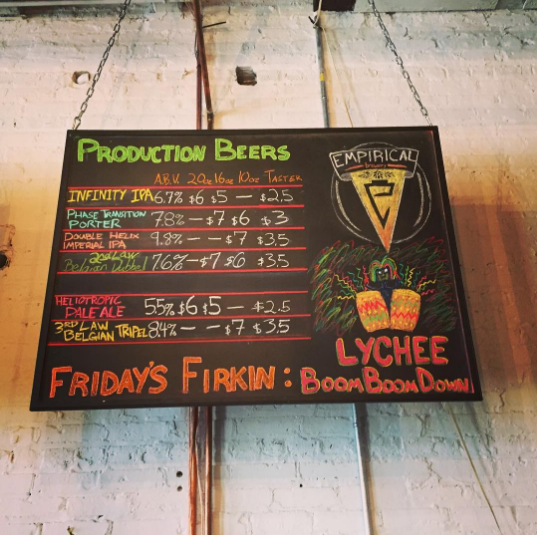 PRODUCTION BEERS
A.B.V. 20oz 16oz 10oz TASTER
INFINITY IPA 6.7% $6 $5 — $2.5
PHASE TRANSITION
PORTER 7.8% — $7 $6 $3
DOUBLE HELIX
IMPERIAL IPA 9.8% — — $7 $3.5
2nd LAW
Belgian Dubbel 7.6% — $7 $6 $3.5
HELIOTROPIC
PALE ALE 5.5% $6 $5 — $2.5
3RD LAW
BELGIAN TRIPEL 8.4% — — $7 $3.5
EMPIRICAL
brewery
E
LYCHEE
FRIDAY'S FIRKIN: BOOM BOOM DOWN